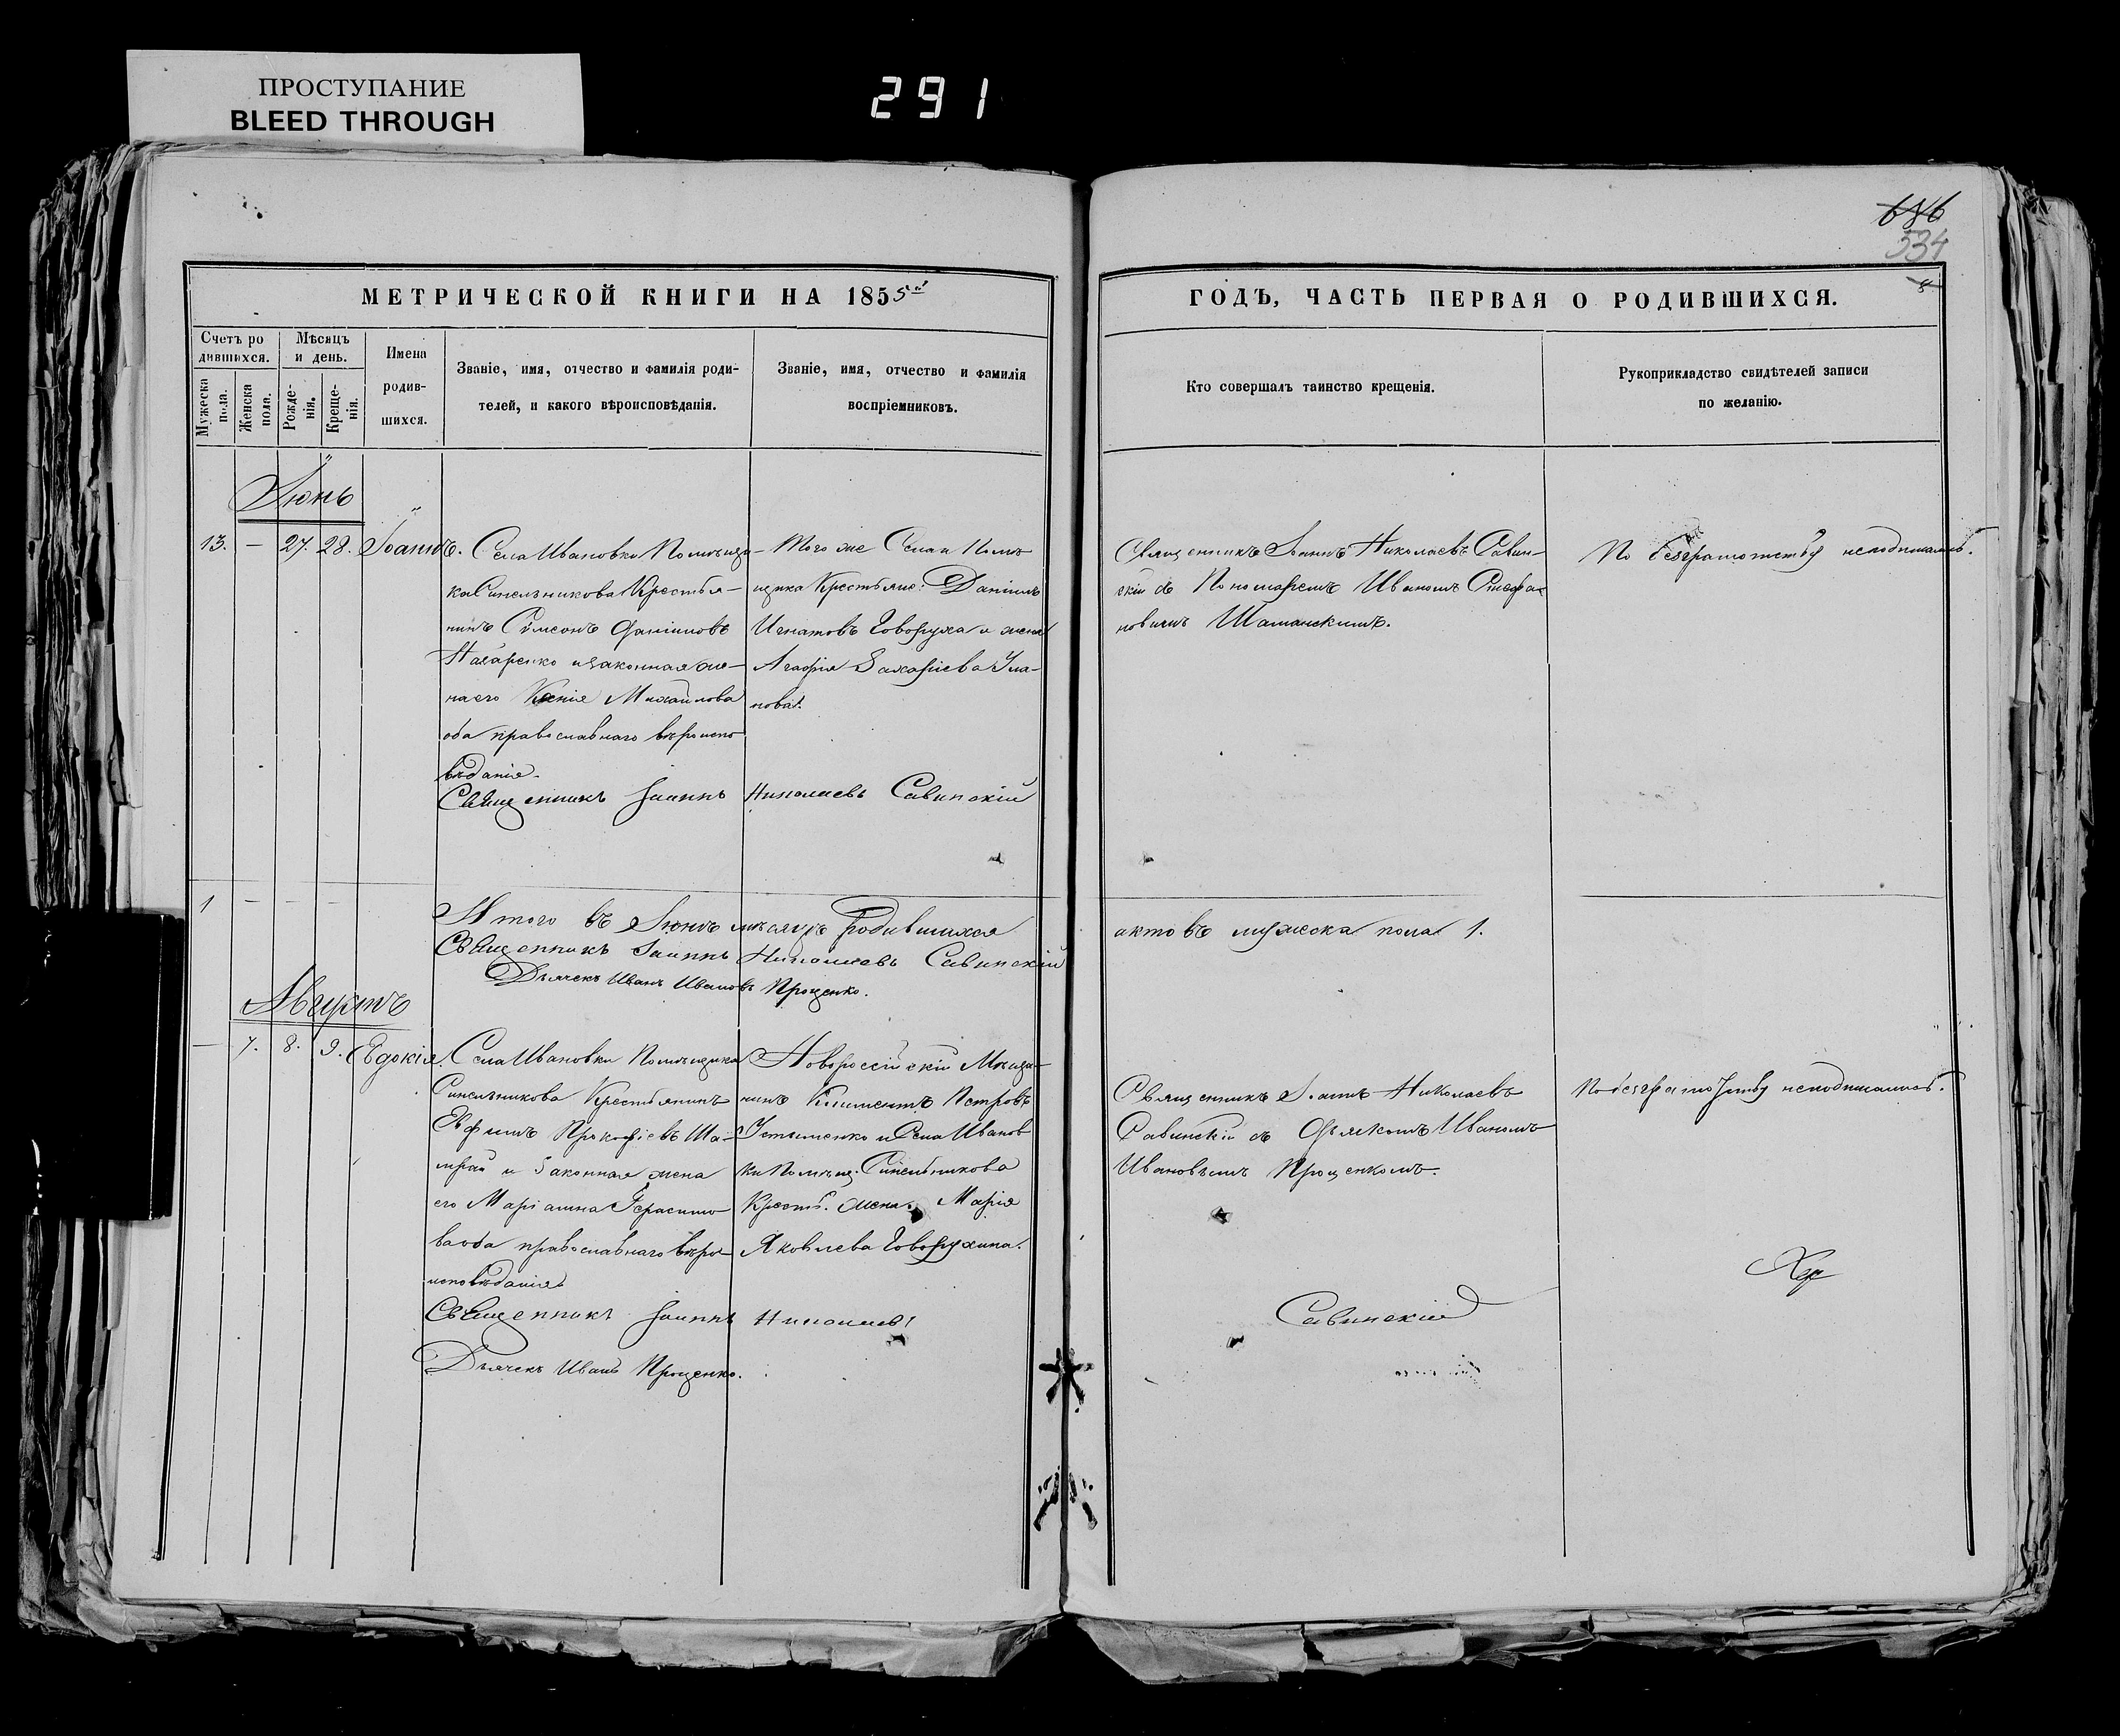 ПРОСТУПАНИЕ
BLEED THROUGH
291
534
МЕТРИЧЕСКОЙ КНИГИ НА 1855й
ГОДЪ, ЧАСТЬ ПЕРВАЯ О РОДИВШИХСЯ.
Счетъ ро
дившихся.
Мужеска пола.
Женска пола.
Мѣсяцъ
и день.
Рожде-
нія.
Креще-
нія.
Имена
родив-
шихся.
Званіе, имя, отчество и фамилія роди-
телей, и какого вѣроисповѣданія.
Званіе, имя, отчество и фамилія
воспріемниковъ.
Кто совершалъ таинство крещенія.
Рукоприкладство свидѣтелей записи
по желанію.
Іюнь
13. — 27. 28. Іоаннъ.
Села Ивановки Помѣщи-
ка Синельникова Крестья-
нинъ Сѵмеонъ Даніиловъ
и законная же-
на его Ксенія Михайлова
оба православнаго вѣроиспо
вѣданія.
Того же Села и Помѣ
щика Крестьяне: Даніилъ
Игнатовъ Говоруха и жена
Агафія Захаріева Ула-
нова.
Священникъ Іоаннъ Николаевъ Савинскій
Священникъ Іоаннъ Николаевъ Савин-
скій съ Пономаремъ Иваномъ Стефа
новичемъ Шаманскимъ.
По безграмотству неподписались.
1 — — —
Итого въ Іюнѣ мѣсяцѣ родившихся
актовъ мужеска пола 1.
Священникъ Іоаннъ Николаевъ Савинскій
Дьячекъ Иванъ Ивановъ Проценко.
Августъ
— 7. 8. 9. Евдокія.
Села Ивановки Помѣщика
Синельникова Крестьянинъ
Евфимъ Прокофіевъ Ша-
мрай и законная жена
его Маріанна Герасимо
ва оба православнаго вѣро
исповѣданія
Новороссійскій Мѣща-
нинъ Климентъ Петровъ
Устименко и Села Иванов
ки Помѣщ. Синельникова
Крест. жена Марія
Яковлева Говорухина.
Священникъ Іоаннъ Николаевъ
Савинскій съ Дьякомъ Иваномъ
Ивановымъ Проценкомъ.
По безграмотству неподписались.
Священникъ Іоаннъ Николаевъ
Савинскій
Дьячекъ Иванъ Проценко.